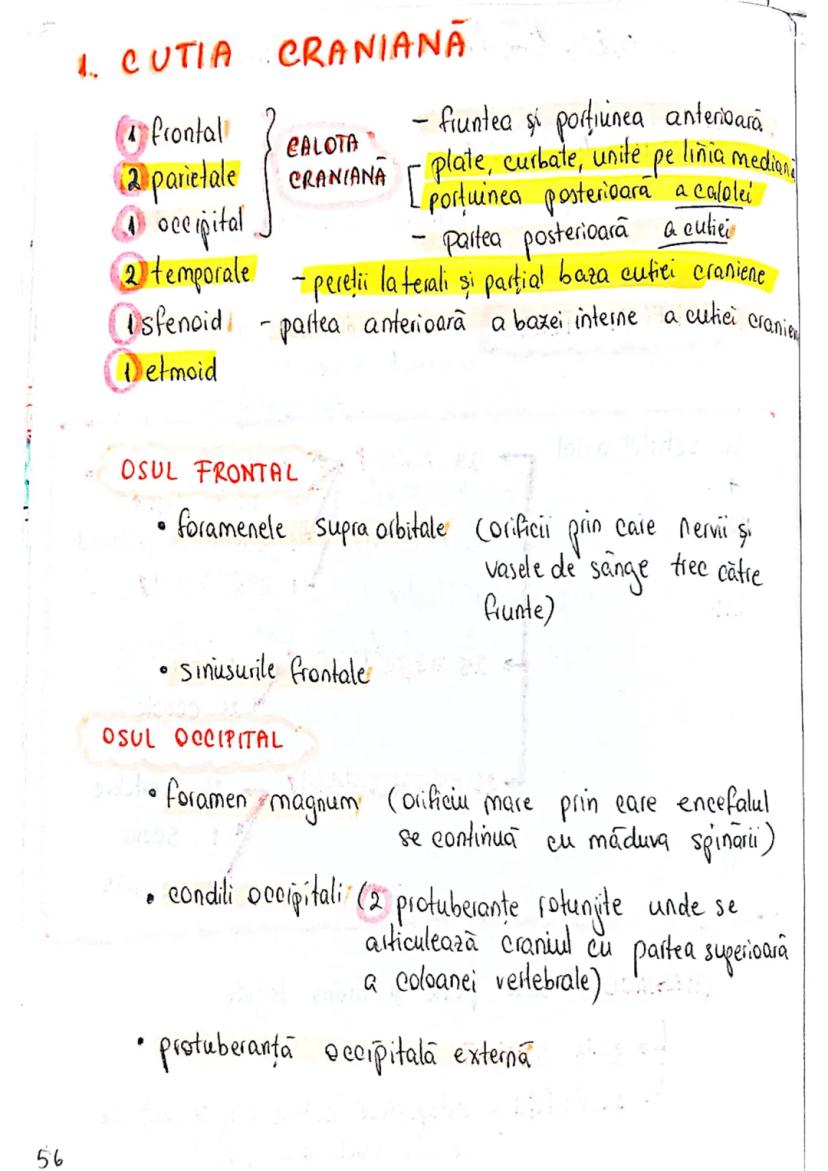 1. CUTIA CRANIANĂ
1 frontal
2 parietale
1 occipital
CALOTA
CRANIANĂ
- fruntea și porțiunea anterioară
plate, curbate, unite pe linia mediană
porțiunea posterioară a calotei
- partea posterioară a cutiei
2 temporale - pereții laterali și parțial baza cutiei craniene
1 sfenoid - partea anterioară a bazei interne a cutiei cranien
1 etmoid
OSUL FRONTAL
• foramenele supraorbitale (orificii prin care nervii și
vasele de sânge trec către
frunte)
• sinusurile frontale
OSUL OCCIPITAL
• foramen magnum (orificiu mare prin care encefalul
se continuă cu măduva spinării)
• condili occipitali (2 protuberanțe rotunjite unde se
articulează craniul cu partea superioară
a coloanei vertebrale)
• protuberanță occipitală externă
56